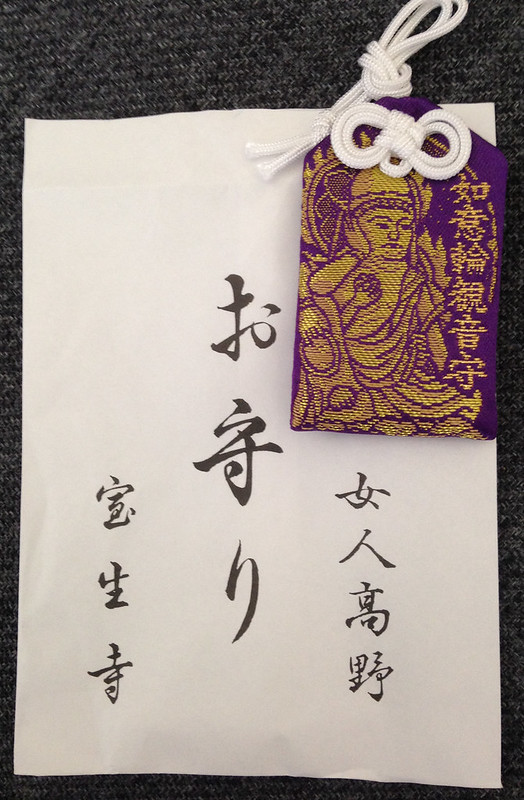 如意輪観音守
女人高野
お守り
室生寺